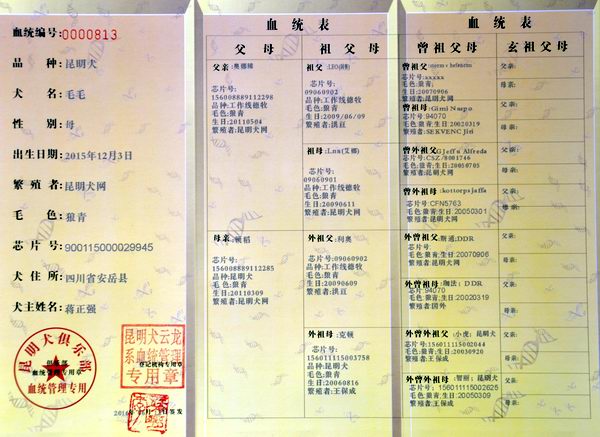 血统编号:0000813
品种:昆明犬
犬名:毛毛
性别:母
出生日期:2015年12月3日
繁殖者:昆明犬网
毛色:狼青
芯片号:900115000029945
犬住所:四川省安岳县
犬主姓名:蒋正强
昆明犬俱乐部
血统管理专用
血统管理专用
昆明犬云龙
系血统管理
登记机构专用章
专用章
血统表
父母
祖父母
父亲:奥娜娣
芯片号:
156008889112298
品种:工作线德牧
毛色:狼青
生日:20110504
繁殖者:昆明犬网
祖父:LEO
芯片号:
09060902
品种:工作线德牧
毛色:狼青
生日:2009/06/09
繁殖者:洪豆
祖母:Lna(艾娜)
芯片号:
09060901
品种:工作线德牧
毛色:狼青
生日:20090611
繁殖者:昆明犬网
母亲:顿稻
芯片号:
156008889112285
品种:昆明犬
毛色:狼青
生日:20110309
繁殖者:昆明犬网
外祖父:利奥
芯片号:09060902
品种:昆明犬
毛色:狼青
生日:20090609
繁殖者:洪豆
外祖母:克顿
芯片号:
156011115003758
品种:昆明犬
毛色:狼青
生日:20060816
繁殖者:王保成
血统表
曾祖父母
玄祖父母
曾祖父:
芯片号:
xxxxx
毛色:狼青;
生日:20070906
繁殖者:昆明犬网
曾祖母:Gimi Narpo
芯片号:94070
毛色:狼青;生日20020319
繁殖者:SEKVENC Jiri
曾外祖父:GJeffs' Alfreda
芯片号:CSZ/8001746
毛色:狼青;生日:20050705
繁殖者:昆明犬网
曾外祖母:kottorpsjaffa
芯片号:CFN5763
毛色:狼青;生日:20050301
繁殖者:昆明犬网
外曾祖父:斯通;DDR
芯片号:
毛色:狼青;生日:20070906
繁殖者:昆明犬网
外曾祖母:咖法;DDR
芯片号:94070
毛色:狼青;生日:20020319
繁殖者:国外
外曾外祖父:小虎;昆明犬
芯片号:156011115002044
毛色:狼青;生日:20030920
繁殖者:王保成
外曾外祖母:智丽;昆明犬
芯片号:156011115002625
毛色:狼青;生日:20050309
繁殖者:王保成
父亲:
母亲:
父亲:
母亲:
父亲:
母亲:
父亲:
母亲:
父亲:
母亲:
父亲:
母亲:
父亲:
母亲:
父亲:
母亲: